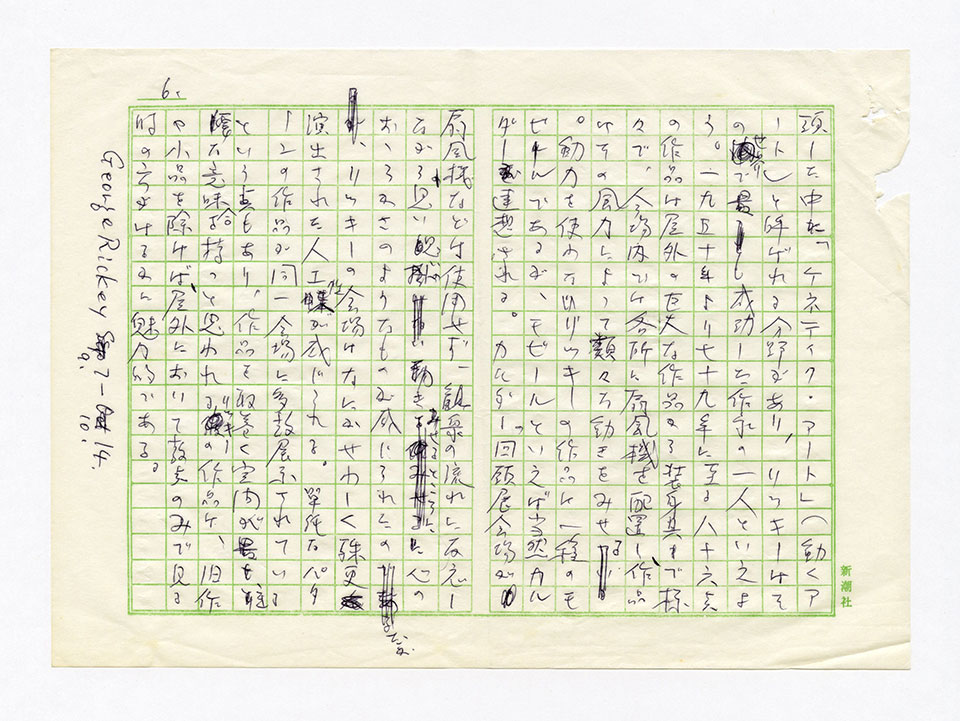 頭した中に「ケネティク・アート」(動くア
ート)と呼ばれる分野があり、リッキーはそ
の世界で最も成功した作家の一人といえよ
う。一九五十年より七十九年に至る八十六点
の作品は屋外の巨大な作品より装身具まで様
々で、会場内では各所に扇風機を配置し、作品
はその風力によって類々な動きをみせる
。動力を使わないリッキーの作品は一種のモ
ビールであるが、モビールといえば当然カル
ダーを連想される。カルダー回顧展会場が
扇風機などは使用せず、観衆の流れに反応し
ながら思い
動きをみせるところに、心の
おゝらかさのようなものが感じられたの
リッキーの会場はなにかせわしく殊更
演出された人工性が感じられる。単純なパタ
ーンの作品が同一会場に多数展示されている
という点もあり、作品を取巻く室内が最も
な意味合を持つと思われるリッキーの作品は、旧作
や小品を除けば、屋外において数点のみで見る
時の方がはるかに魅力的である。
6.
George Rickey 9. 7 — 10. 14.
新潮社